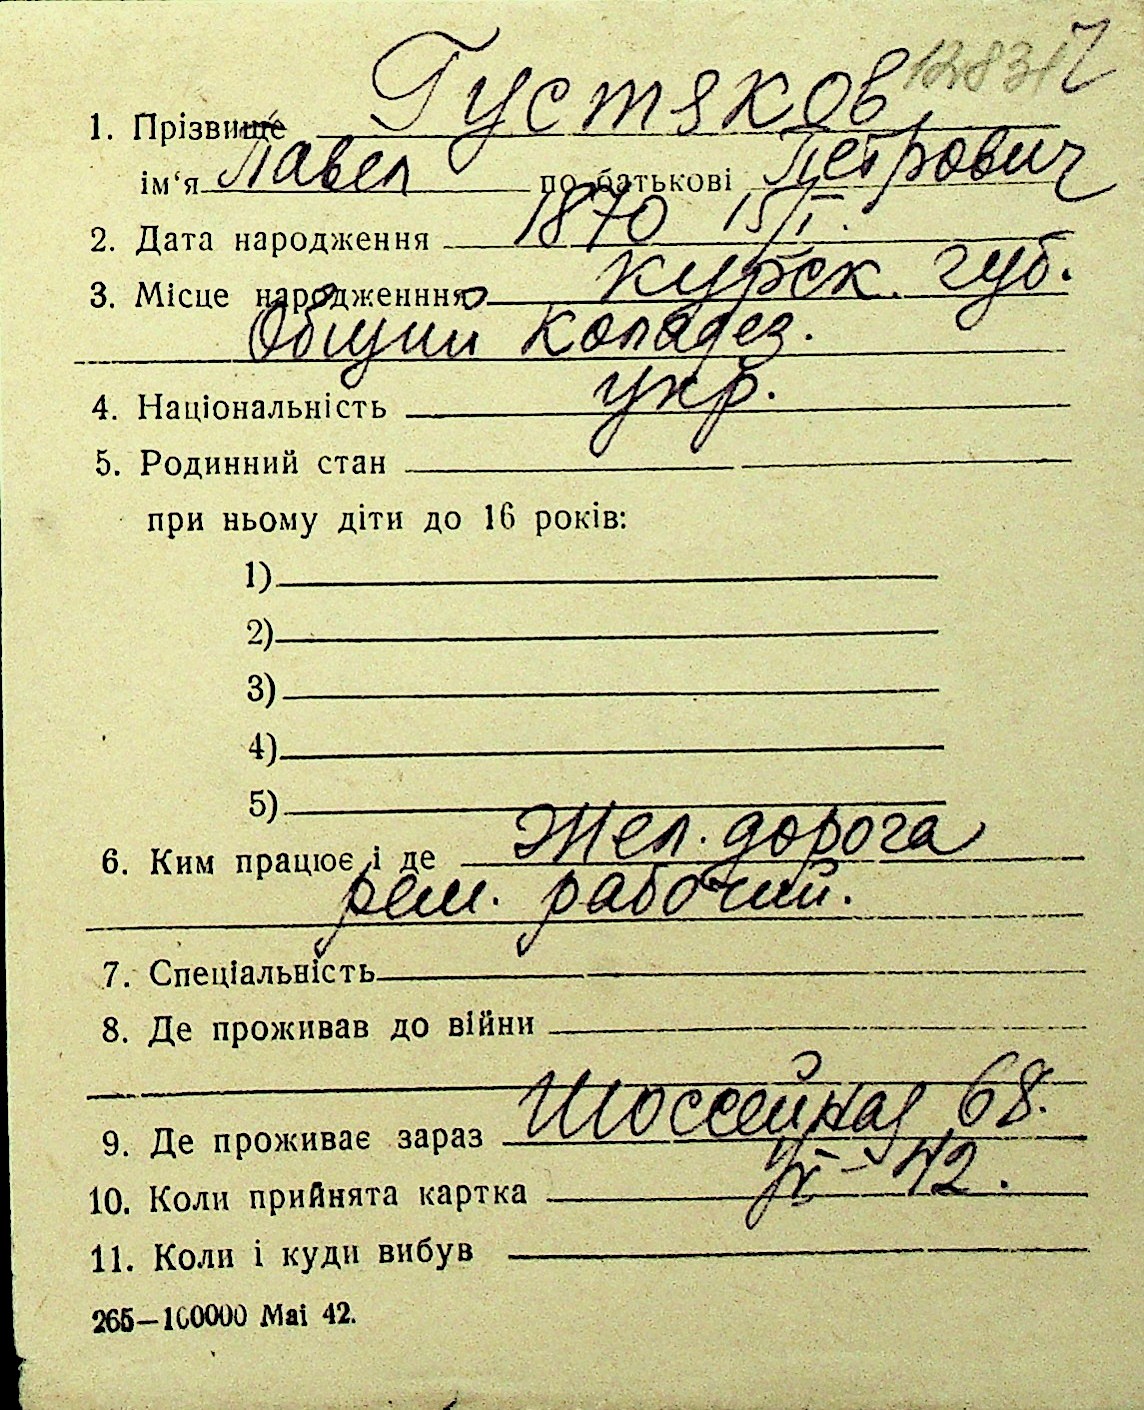 1. Прізвище Густяков
ім'я Павел по батькові Петрович
2. Дата народження 1870 15/I.
3. Місце народженння Курск. губ.
Общий Коладез.
4. Національність укр.
5. Родинний стан
при ньому діти до 16 років:
1)
2)
3)
4)
5)
6. Ким працює і де Жел. дорога
рем. рабочий.
7. Спеціальність
8. Де проживав до війни
9. Де проживає зараз Шоссейная 68.
10. Коли прийнята картка - 42.
11. Коли і куди вибув
265—100000 Mai 42.